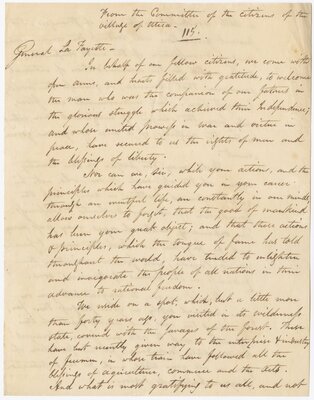 From the Committee of the citizens of the
village of Utica.
115.
General La Fayette.
In behalf of our fellow citizens, we come with
open arms, and hearts filled with gratitude, to welcome
the man who was the companion of our fathers in
the glorious struggle which achieved their Independence;
and whose united prowess in war and virtue in
peace, have secured to us the rights of men and
the blessings of liberty.
Nor can we, Sir, while your actions, and the
principles which have guided you in your career
through an eventful life, are constantly in our minds,
allow ourselves to forget, that the good of mankind
has been your great object; and that these actions
& principles, which the tongue of fame has told
throughout the world, have tended to enlighten
and invigorate the people of all nations in their
advance to rational freedom.
We reside on a spot, which, but a little more
than forty years ago, you visited in its wilderness
state, covered with the savages of the forest. These
have but recently given way to the enterprise & industry
of freemen, in whose train have followed all the
blessings of agriculture, commerce and the Arts.
And what is most gratifying to us all, and not